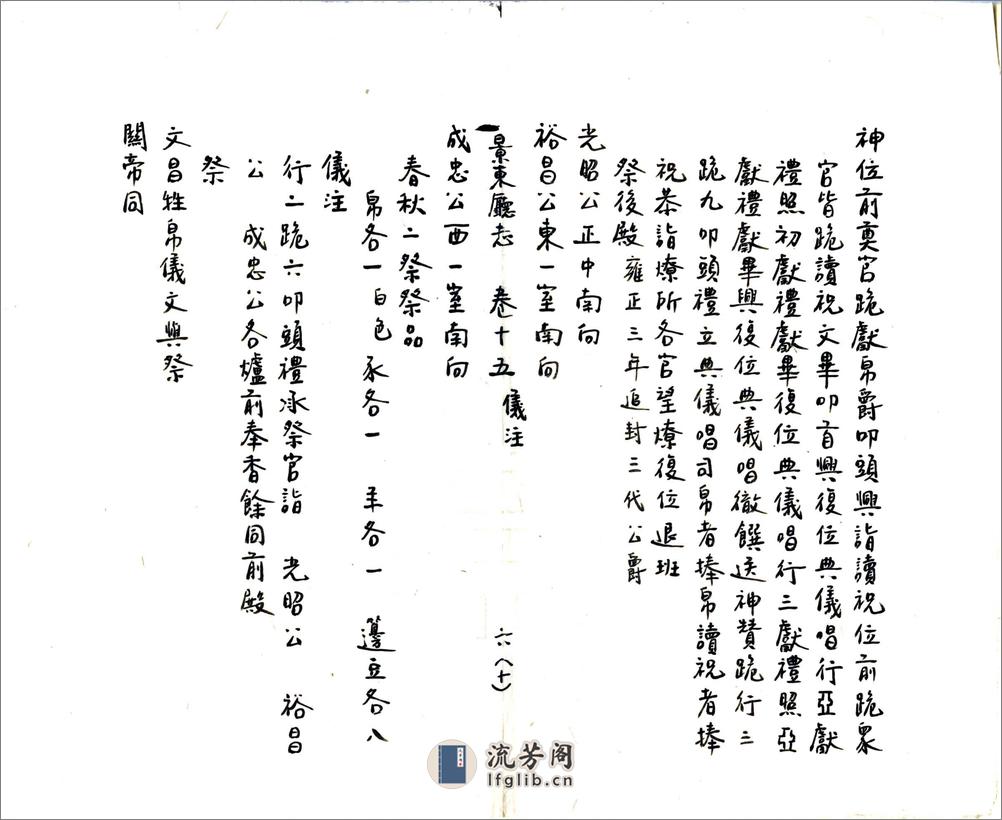 神位前奠官跪獻帛爵叩頭興詣讀祝位前跪衆
官皆跪讀祝文畢叩首興復位典儀唱行亞獻
禮照初獻禮獻畢復位典儀唱行三獻禮照亞
獻禮獻畢興復位典儀唱徹饌送神贊跪行三
跪九叩頭禮立典儀唱司帛者捧帛讀祝者捧
祝恭詣燎所各官望燎復位退班
祭後殿雍正三年追封三代公爵
光昭公正中南向
裕昌公東一室南向
景東廳志 卷十五 儀注 六(十)
成忠公西一室南向
春秋二祭祭品
帛各一白色 豕各一 羊各一 籩豆各八
儀注
行二跪六叩頭禮承祭官詣 光昭公 裕昌
公 成忠公各爐前奉香餘同前殿
祭
文昌牲帛儀文與祭
關帝同
流芳阁
lfglib.cn